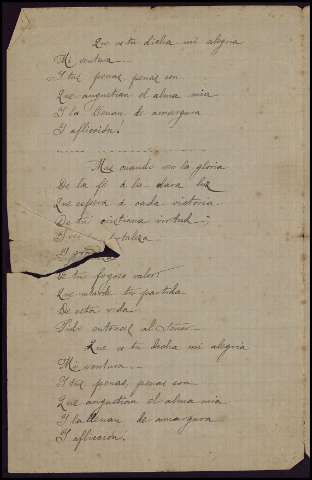 Que es tu dicha mi alegria
Mi ventura...
Y tus penas, penas son
Que angustian el alma mia
Y la llenan de amargura
Y aflicción.
Mas cuando veo la gloria
De la fé á la clara luz
Que espera á cada victoria
De tu cristiana virtud
Y
Y
De tu fogoso valor
Que tu partida
De esta vida
Pido entonces al Señor
Que es tu dicha mi alegria
Mi ventura...
Y tus penas, penas son
Que angustian el alma mia
Y la llenan de amargura
Y aflicción.